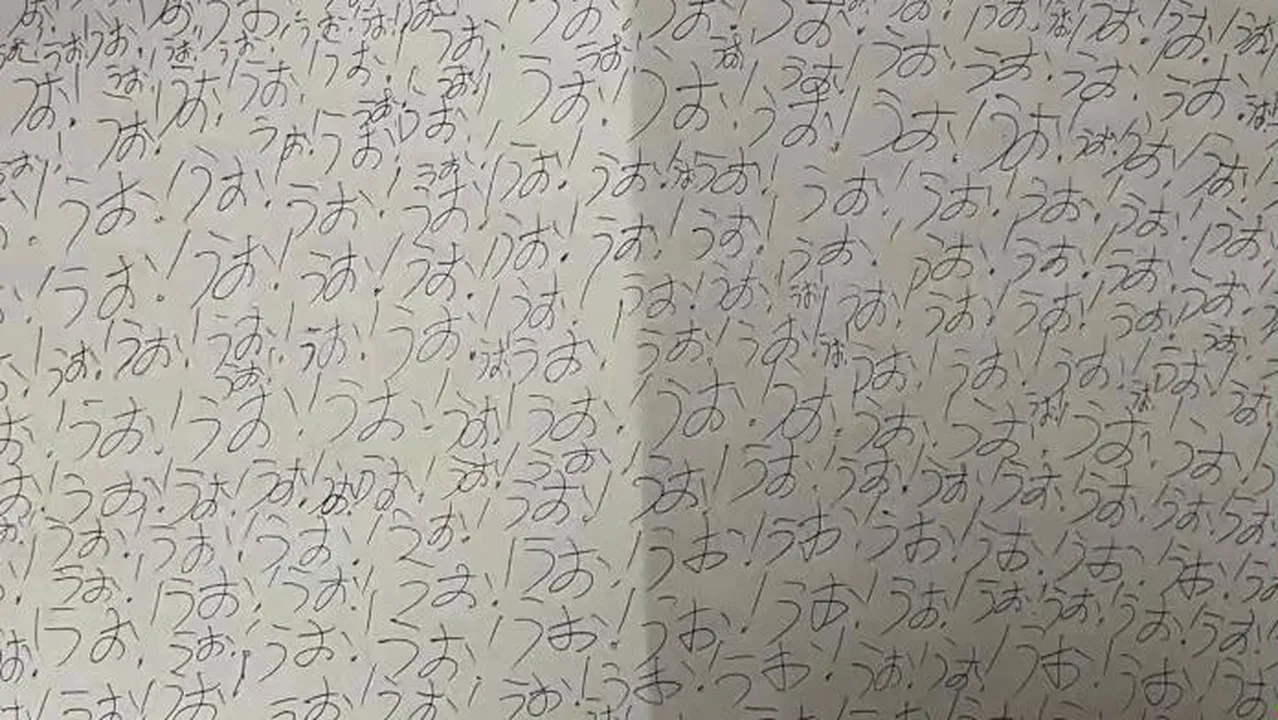 うお！うお！うお！うお！うお！うお！うお！うお！うお！うお！うお！
うお！うお！うお！うお！うお！うお！うお！うお！うお！うお！うお！
うお！うお！うお！うお！うお！うお！うお！うお！うお！うお！うお！
うお！うお！うお！うお！うお！うお！うお！うお！うお！うお！うお！
うお！うお！うお！うお！うお！うお！うお！うお！うお！うお！うお！
うお！うお！うお！うお！うお！うお！うお！うお！うお！うお！うお！
うお！うお！うお！うお！うお！うお！うお！うお！うお！うお！うお！
うお！うお！うお！うお！うお！うお！うお！うお！うお！うお！うお！
うお！うお！うお！うお！うお！うお！うお！うお！うお！うお！うお！
うお！うお！うお！うお！うお！うお！うお！うお！うお！うお！うお！
うお！うお！うお！うお！うお！うお！うお！うお！うお！うお！うお！
うお！うお！うお！うお！うお！うお！うお！うお！うお！うお！うお！